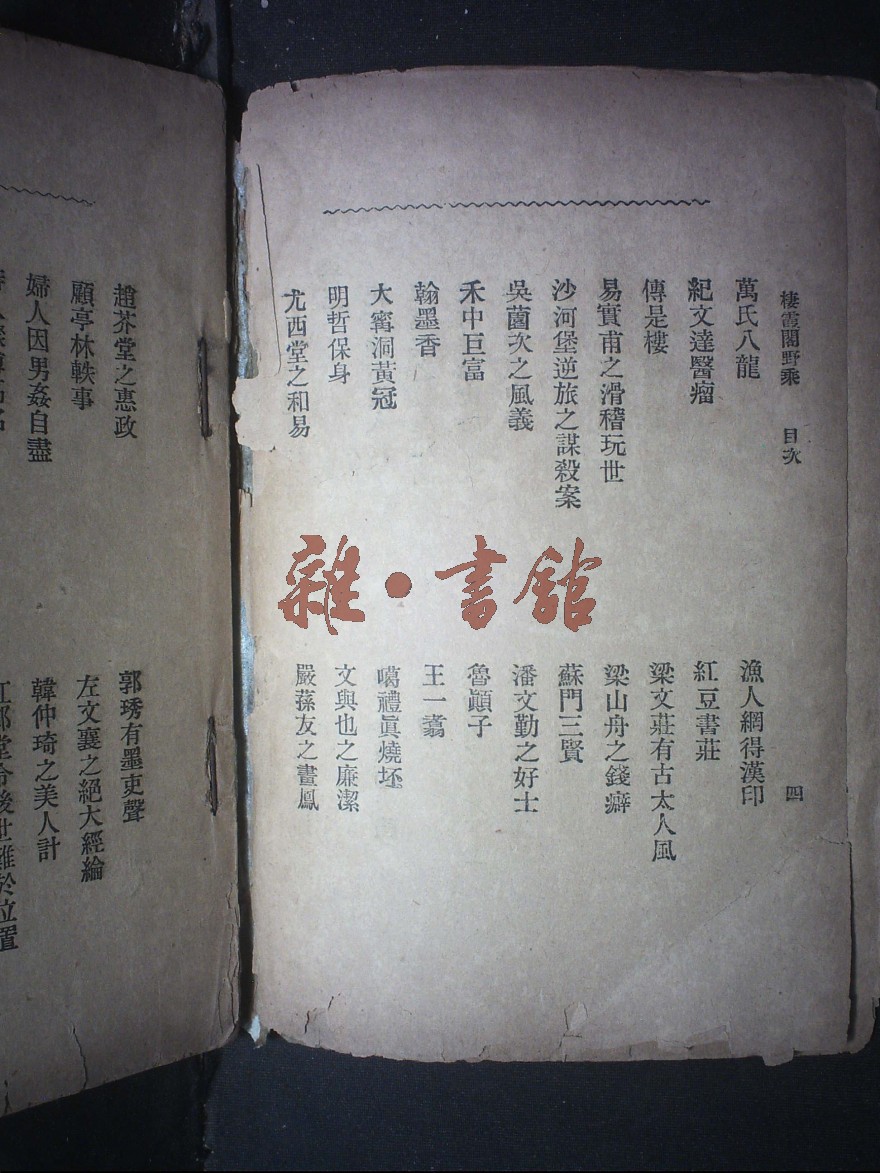 棲霞閣野乘 目次 四
萬氏八龍
紀文達醫瘤
傳是樓
易實甫之滑稽玩世
沙河堡逆旅之謀殺案
吳薗次之風義
禾中巨富
翰墨香
大寗洞黃冠
明哲保身
尤西堂之和易
漁人網得漢印
紅豆書莊
梁文莊有古大人風
梁山舟之錢癖
蘇門三賢
潘文勤之好士
魯顚子
王一翥
噶禮眞燒坯
文與也之廉潔
嚴蓀友之畫鳳
趙芥堂之惠政
顧亭林軼事
婦人因男姦自盡
郭琇有墨吏聲
左文襄之絕大經綸
韓仲琦之美人計
雜·書館